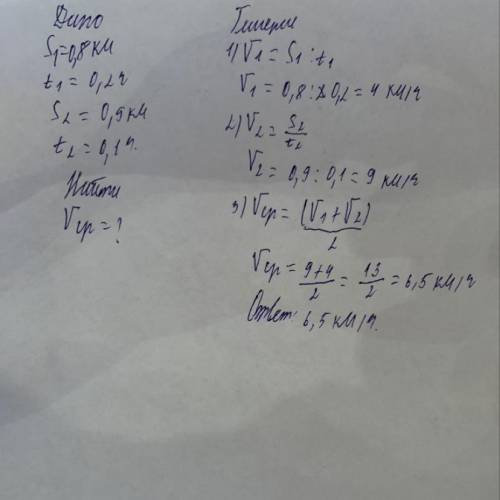 Дано
S1=0,8 км
t1 = 0,2 ч
S2 = 0,9 км
t2 = 0,1 ч.
Найти
Vср = ?
1) V1 = S1 : t1
V1 = 0,8 : 0,2 = 4 км/ч
2) V2 = S2/t2
V2 = 0,9 : 0,1 = 9 км/ч
3) Vср = (V1 + V2)/2
Vср = 9+4/2 = 13/2 = 6,5 км/ч
Ответ: 6,5 км/ч.